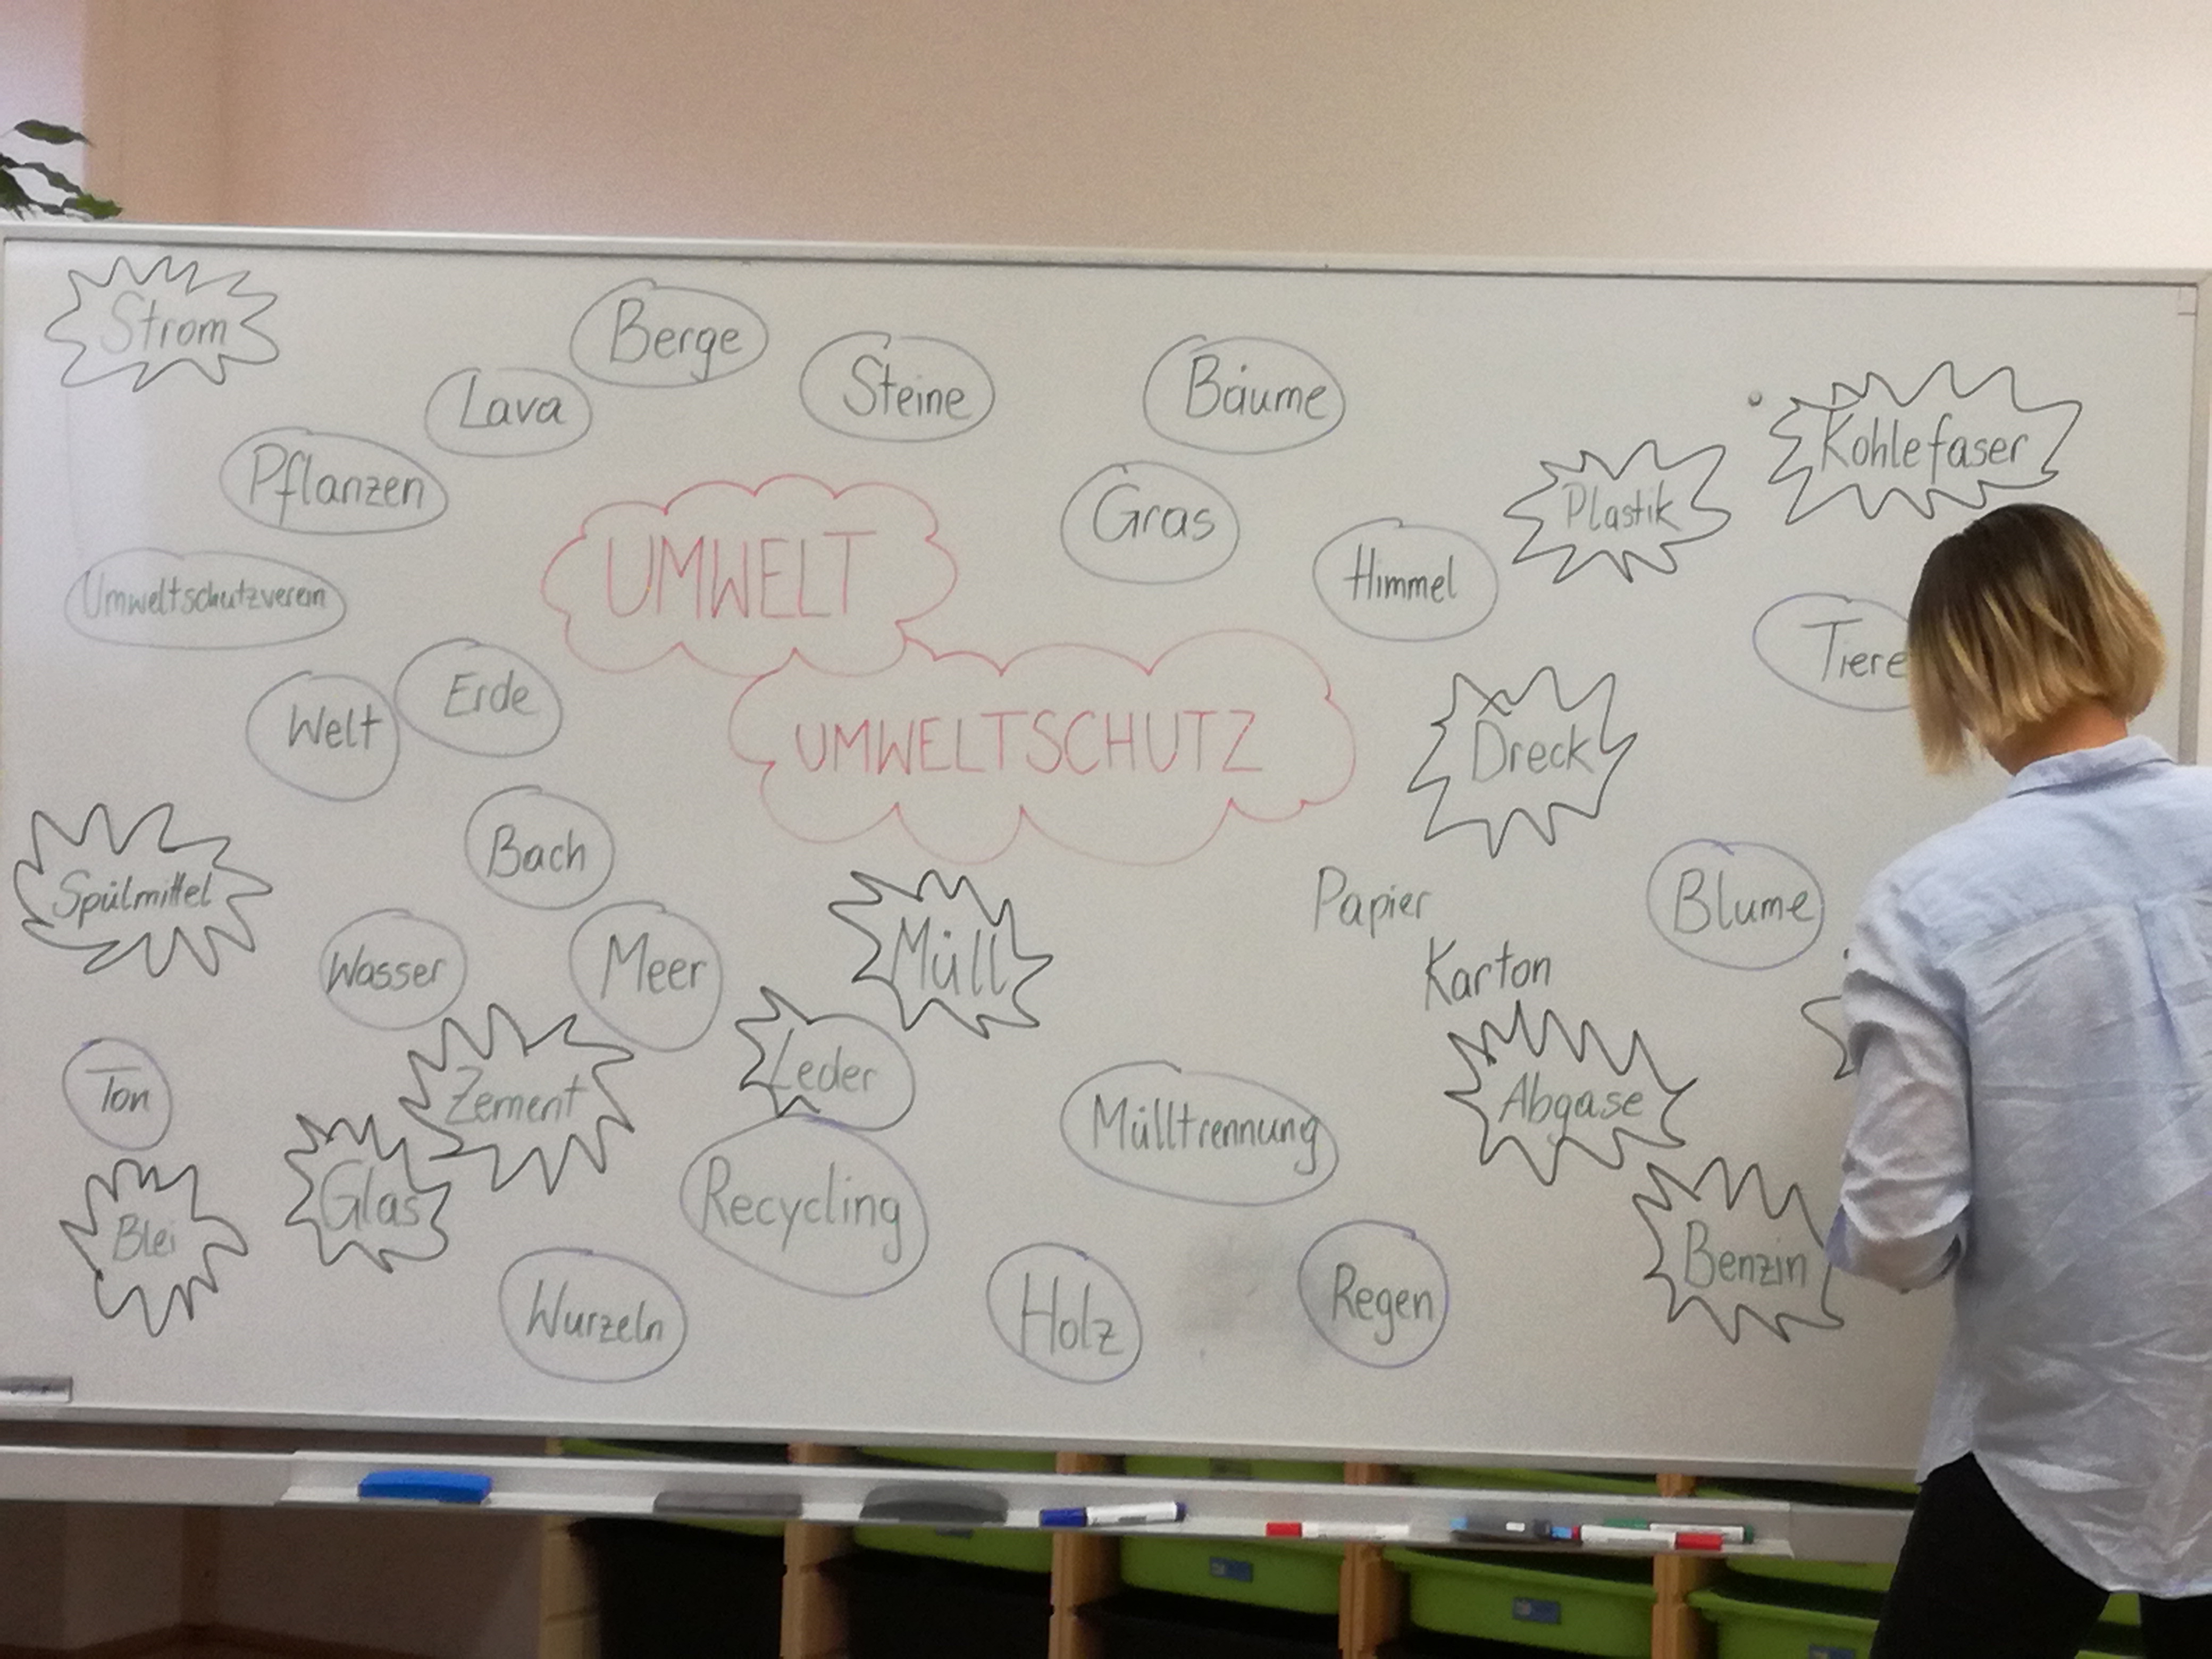 Strom
Berge
Lava
Steine
Bäume
Kohlefaser
Pflanzen
Plastik
Gras
UMWELT
Himmel
Umweltschutzverein
Tiere
Erde
Welt
UMWELTSCHUTZ
Dreck
Bach
Spülmittel
Papier
Blume
Wasser
Meer
Müll
Karton
Ton
Zement
Leder
Mülltrennung
Abgase
Glas
Blei
Recycling
Benzin
Wurzeln
Holz
Regen